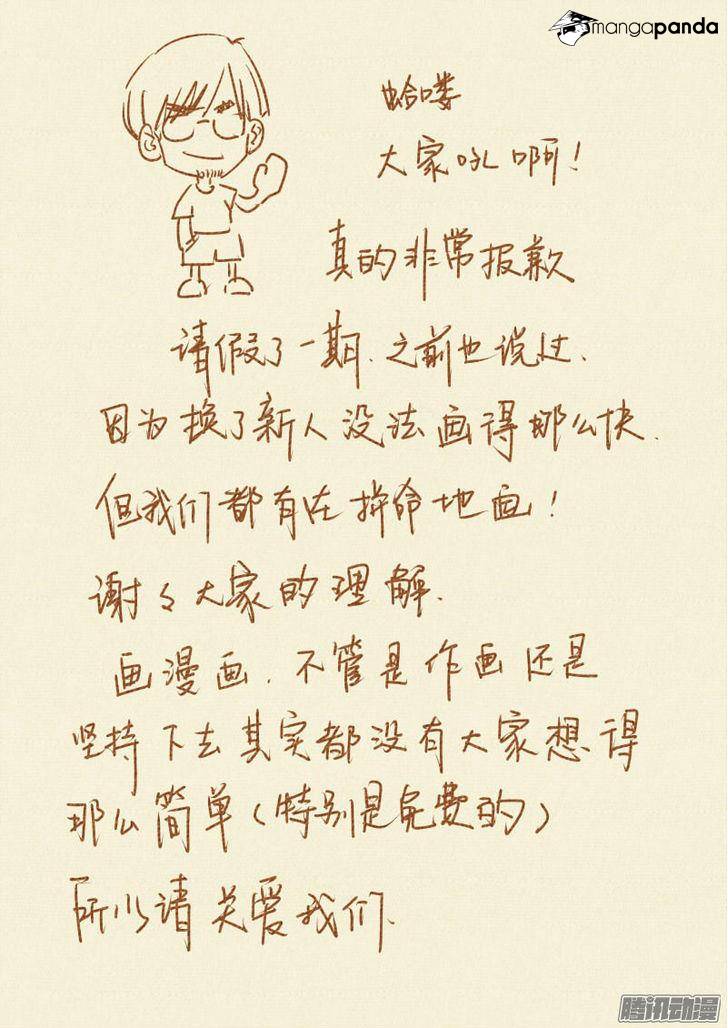 mangapanda
蛤喽
大家吼啊!
真的非常报歉
请假了一期.之前也说过.
因为换了新人没法画得那么快.
但我们都有在拼命地画!
谢々大家的理解.
画漫画.不管是作画还是
坚持下去其实都没有大家想得
那么简单(特别是免费的)
所以请关爱我们.
腾讯动漫